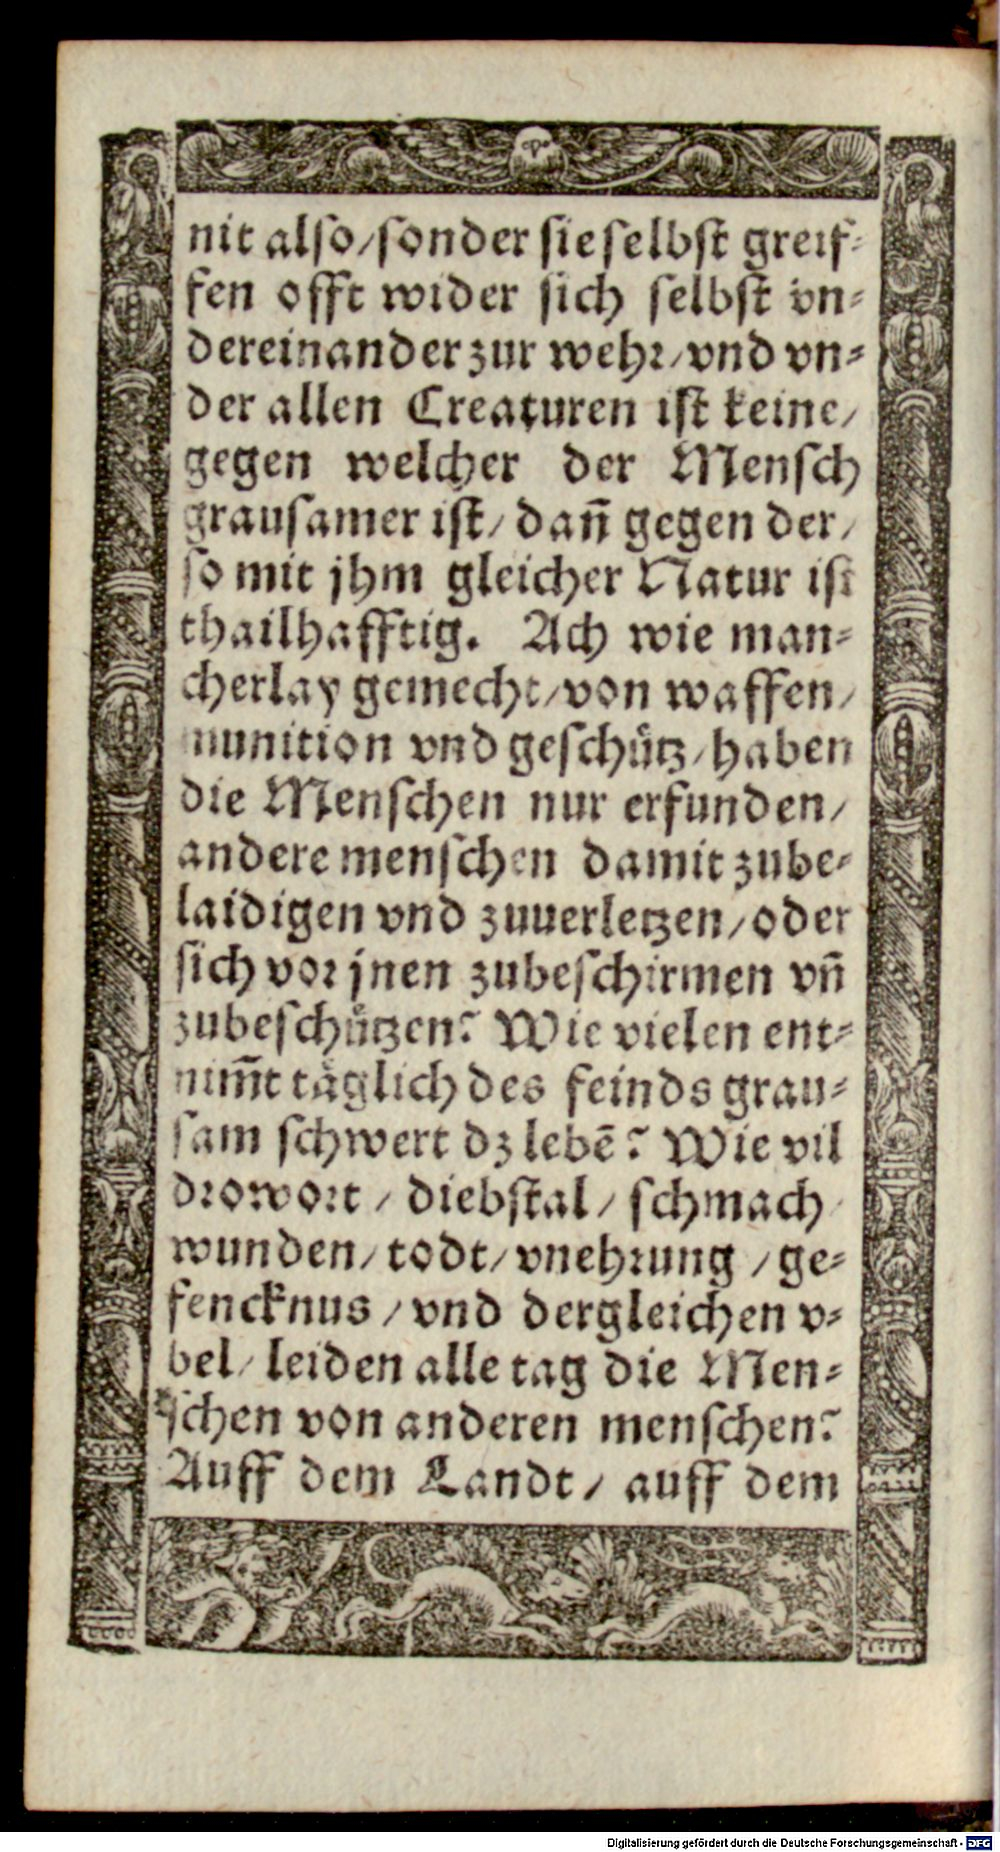 nit also/sonder sie selbst greif-
fen offt wider sich selbst vn-
dereinander zur wehr/vnd vn-
der allen Creaturen ist keine/
gegen welcher der Mensch
grausamer ist/dañ gegen der/
so mit jhm gleicher Natur ist
thailhafftig. Ach wie man-
cherlay gemecht/von waffen/
munition vnd geschütz/haben
die Menschen nur erfunden/
andere menschen damit zube-
laidigen vnd zuuerletzen/oder
sich vor jnen zubeschirmen vñ
zubeschützen? Wie vielen ent-
nim̃t täglich des feinds grau-
sam schwert dz lebē? Wie vil
drowort/diebstal/schmach/
wunden/todt/vnehrung/ge-
fencknus/vnd dergleichen v-
bel/leiden alle tag die Men-
schen von anderen menschen?
Auff dem Landt/auff dem
Digitalisierung gefördert durch die Deutsche Forschungsgemeinschaft - DFG